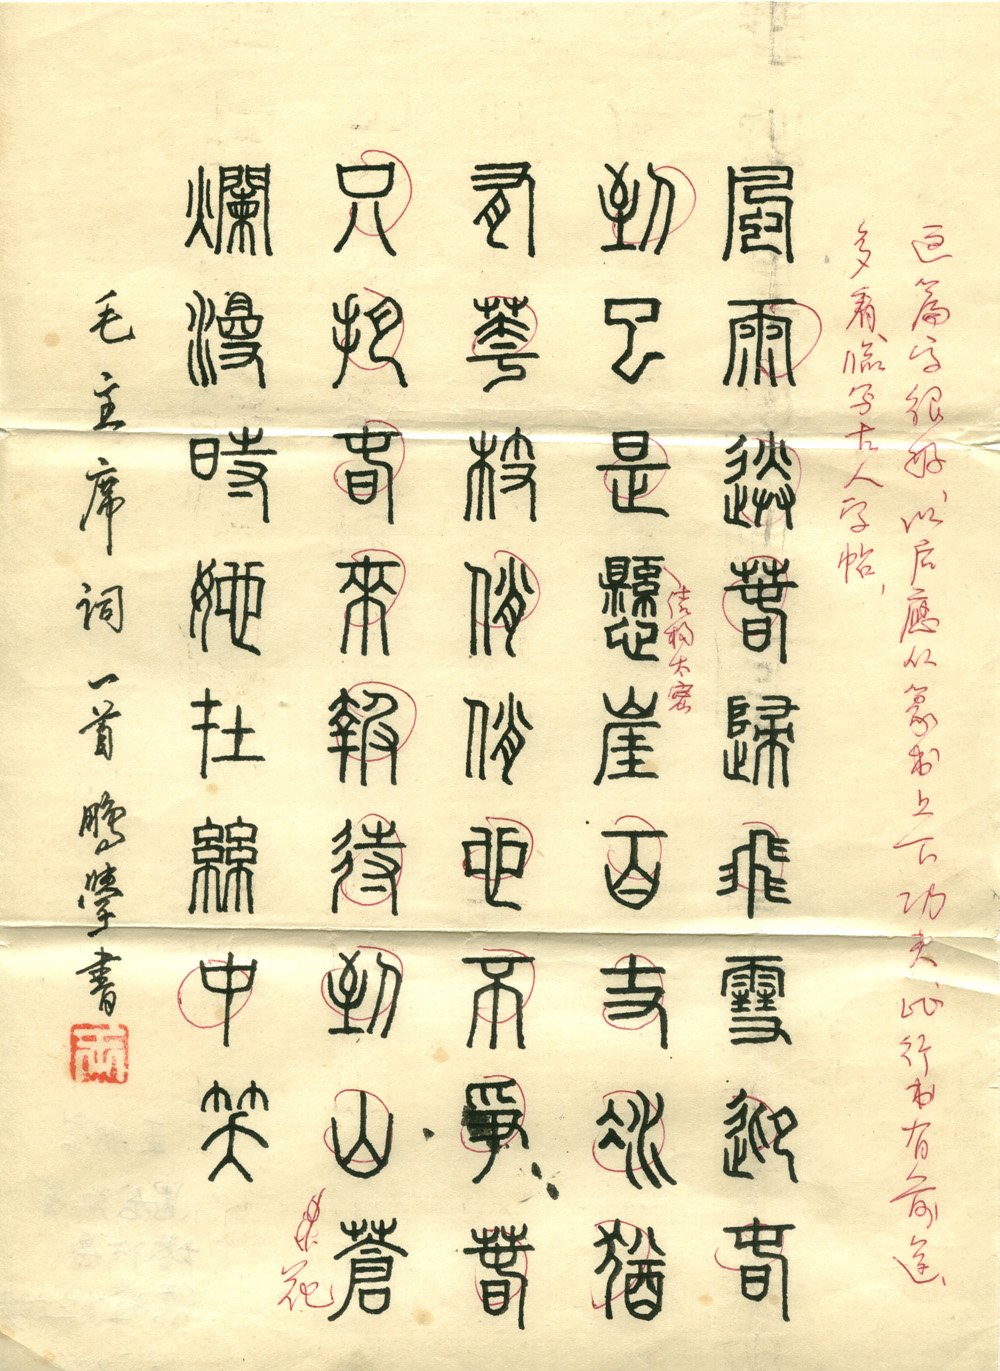 这篇字很好、以后應从篆书上下功夫、此行书有前途、
多看、临写古人字帖、
風雨送春歸飛雪迎春
到已是懸崖百丈冰猶
结构太密
有華枝俏俏也不爭春
只把春來報待到山蒼
花
爛漫時她在叢中笑
毛主席词一首 鵬學書